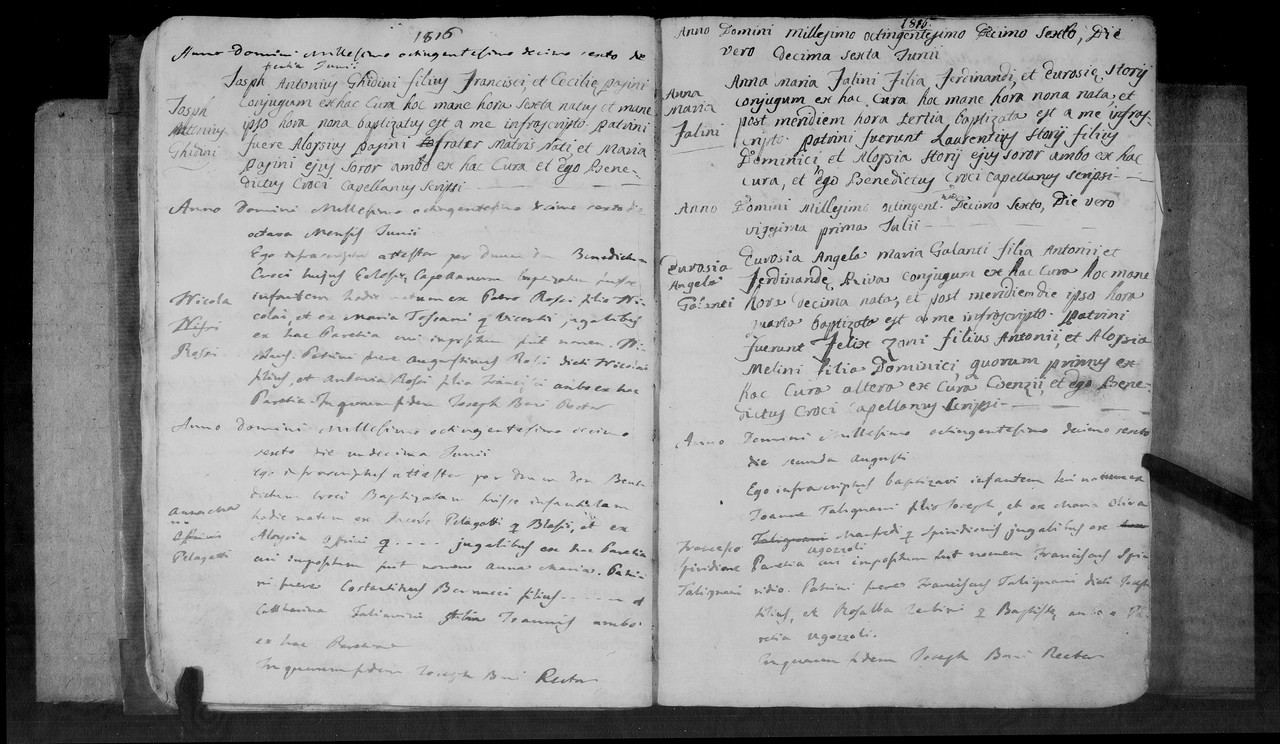 1816
Anno Domini Millesimo octingentesimo decimo sexto die
Junii
Joseph Antonius Ghidini filius Francisci, et Cecilie Pajini
Joseph
Antonius
Ghidini
conjugum ex hac Cura hoc mane hora sexta natus et mane
ipso hora nona baptizatus est a me infrascripto. Patrini
fuere Aloysius Pajini frater Matris Nati et Maria
Pajini ejus soror ambo ex hac Cura et Ego Bene-
dictus Croci Capellanus scripsi
Anno Domini Millesimo octingentesimo decimo sexto die
octava Mensis Junii
Ego infrascriptus attestor per Benedictum
Croci hujus Capellanum baptizatum fuisse
Nicola
Rossi
infantem hodie natum ex Petro Rossi filio Ni-
colai, et ex Maria Toscani q Vicentii jugalibus
ex hac Paretia cui impositum fuit nomen Ni-
Patrini fuere Augustinus Rossi Nicolai
filius, et Antonia Rossi filia Francisci ambo ex hac
Paretia. In quorum fidem Joseph Boni Rector
Anno Domini Millesimo octingentesimo decimo
sexto die undecima Junii
Ego infrascriptus attestor per Bene-
dictum Croci Baptizatam fuisse infantulam
Anna Maria
Pelagatti
hodie natam ex Jacobo Pelagatti q Blasii, et ex
Aloysia q ---- jugalibus ex hac Paretia
cui impositum fuit nomen Anna Maria. Patri-
ni fuere Costantinus Bernucci filius ---- et
Catherina filia Joannis ambo
ex hac Paretia
In quorum fidem Joseph Boni Rector
1816.
Anno Domini Millesimo octingentesimo Decimo Sexto, Die
vero Decima Sexta Junii
Anna Maria Jalini Filia Ferdinandi, et Eurosie Storij
Anna
Maria
Jalini
conjugum ex hac Cura hoc mane hora nona nata, et
post meridiem hora tertia baptizata est a me infras-
cripto. Patrini fuerunt Laurentius Storij filius
Dominici et Aloysia Storij ejus soror ambo ex hac
cura, et Ego Benedictus Croci Capellanus scripsi
Anno Domini Millesimo octingent. Decimo Sexto, Die vero
vigesima prima Julii
Eurosia Angela Maria Galanti filia Antonii, et
Eurosia
Angela
Galanti
Ferdinande Riva conjugum ex hac Cura hoc mane
hora decima nata, et post meridiem die ipso hora
quarta baptizata est a me infrascripto. Patrini
fuerunt Felix Zani filius Antonii, et Aloysia
Melini filia Dominici, quorum primus ex
hac Cura altera ex Cura et Ego Bene-
dictus Croci Capellanus scripsi
Anno Domini Millesimo octingentesimo decimo sexto
die secunda Augusti
Ego infrascriptus baptizavi infantem heri natum ex
Joanne Talignani filio Joseph, et ex Maria Oliva
Talignani Manfredi q Spiridionis jugalibus ex
Ugozzoli
Francesco
Spiridione
Talignani
Paretia cui impositum fuit nomen Franciscus Spiri-
ridio. Patrini fuere Franciscus Talignani Joseph
filius, et Rosalba Zerbini q Baptiste, ambo e Pa-
retia Ugozzoli.
In quorum fidem Joseph Boni Rector